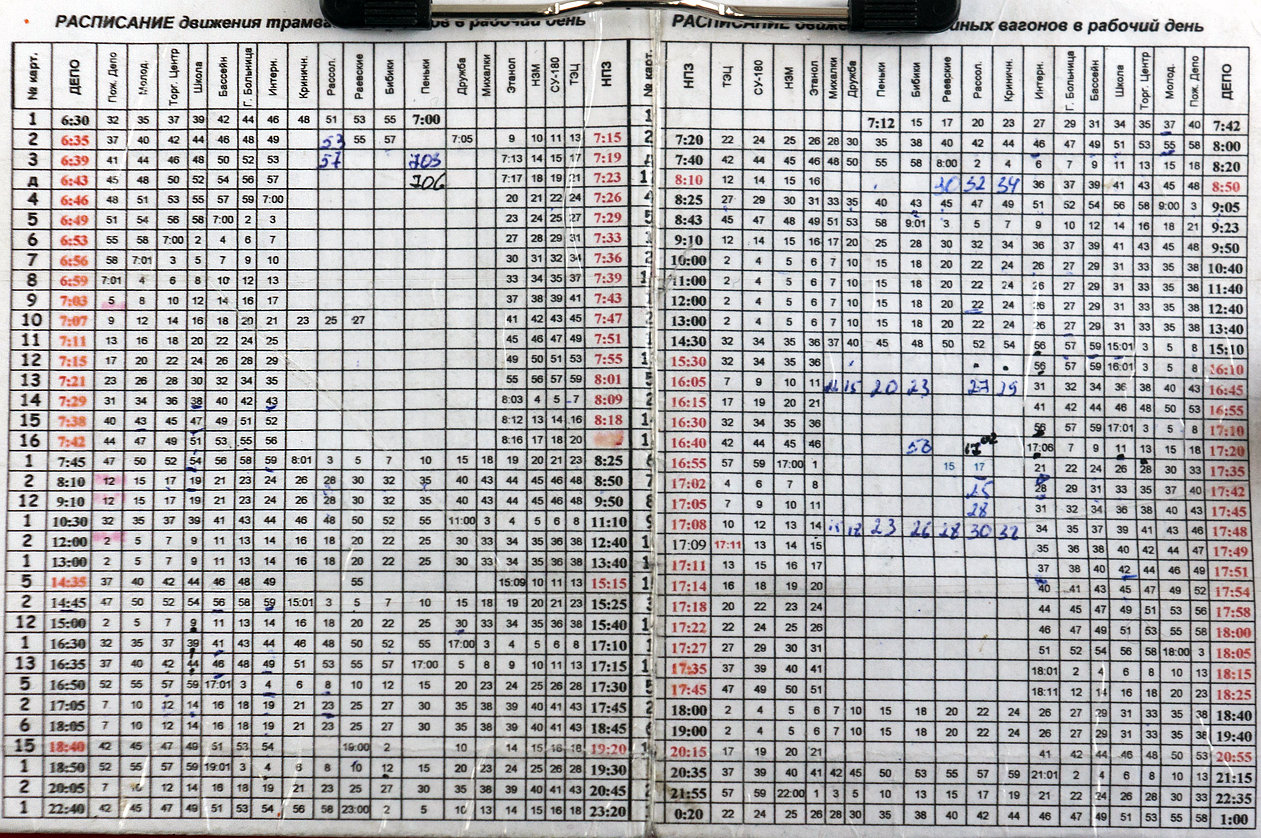 РАСПИСАНИЕ движения в рабочий день
№ карт. ДЕПО Пож. Депо Молод. Торг. Центр Школа Бассейн Г. Больница Интерн. Криничн. Рассол. Раевские Бибики Пеньки Дружба Михалки Этанол НЗМ СУ-180 ТЭЦ НПЗ
1 6:30 32 35 37 39 42 44 46 48 51 53 55 7:00
2 6:35 37 40 42 44 46 48 49 53 55 57 7:05 9 10 11 13 7:15
3 6:39 41 44 46 48 50 52 53 57 703 7:13 14 15 17 7:19
д 6:43 45 48 50 52 54 56 57 706 7:17 18 19 21 7:23
4 6:46 48 51 53 55 57 59 7:00 20 21 22 24 7:26
5 6:49 51 54 56 58 7:00 2 3 23 24 25 27 7:29
6 6:53 55 58 7:00 2 4 6 7 27 28 29 31 7:33
7 6:56 58 7:01 3 5 7 9 10 30 31 32 34 7:36
8 6:59 7:01 4 6 8 10 12 13 33 34 35 37 7:39
9 7:03 5 8 10 12 14 16 17 37 38 39 41 7:43
10 7:07 9 12 14 16 18 20 21 23 25 27 41 42 43 45 7:47
11 7:11 13 16 18 20 22 24 25 45 46 47 49 7:51
12 7:15 17 20 22 24 26 28 29 49 50 51 53 7:55
13 7:21 23 26 28 30 32 34 35 55 56 57 59 8:01
14 7:29 31 34 36 38 40 42 43 8:03 4 5 7 8:09
15 7:38 40 43 45 47 49 51 52 8:12 13 14 16 8:18
16 7:42 44 47 49 51 53 55 56 8:16 17 18 20
1 7:45 47 50 52 54 56 58 59 8:01 3 5 7 10 15 18 19 20 21 23 8:25
2 8:10 12 15 17 19 21 23 24 26 28 30 32 35 40 43 44 45 46 48 8:50
12 9:10 12 15 17 19 21 23 24 26 28 30 32 35 40 43 44 45 46 48 9:50
1 10:30 32 35 37 39 41 43 44 46 48 50 52 55 11:00 3 4 5 6 8 11:10
2 12:00 2 5 7 9 11 13 14 16 18 20 22 25 30 33 34 35 36 38 12:40
1 13:00 2 5 7 9 11 13 14 16 18 20 22 25 30 33 34 35 36 38 13:40
5 14:35 37 40 42 44 46 48 49 55 15:09 10 11 13 15:15
2 14:45 47 50 52 54 56 58 59 15:01 3 5 7 10 15 18 19 20 21 23 15:25
12 15:00 2 5 7 9 11 13 14 16 18 20 22 25 30 33 34 35 36 38 15:40
1 16:30 32 35 37 39 41 43 44 46 48 50 52 55 17:00 3 4 5 6 8 17:10
13 16:35 37 40 42 44 46 48 49 51 53 55 57 17:00 5 8 9 10 11 13 17:15
5 16:50 52 55 57 59 17:01 3 4 6 8 10 12 15 20 23 24 25 26 28 17:30
2 17:05 7 10 12 14 16 18 19 21 23 25 27 30 35 38 39 40 41 43 17:45
6 18:05 7 10 12 14 16 18 19 21 23 25 27 30 35 38 39 40 41 43 18:45
15 18:40 42 45 47 49 51 53 54 19:00 2 10 14 15 16 18 19:20
1 18:50 52 55 57 59 19:01 3 4 6 8 10 12 15 20 23 24 25 26 28 19:30
2 20:05 7 10 12 14 16 18 19 21 23 25 27 30 35 38 39 40 41 43 20:45
1 22:40 42 45 47 49 51 53 54 56 58 23:00 2 5 10 13 14 15 16 18 23:20
РАСПИСАНИЕ вагонов в рабочий день
НПЗ ТЭЦ СУ-180 НЗМ Этанол Михалки Дружба Пеньки Бибики Раевские Рассол. Криничн. Интерн. Г. Больница Бассейн Школа Торг. Центр Молод. Пож. Депо ДЕПО
7:12 15 17 20 23 27 29 31 34 35 37 40 7:42
7:20 22 24 25 26 28 30 35 38 40 42 44 46 47 49 51 53 55 58 8:00
7:40 42 44 45 46 48 50 55 58 8:00 2 4 6 7 9 11 13 15 18 8:20
8:10 12 14 15 16 30 32 34 36 37 39 41 43 45 48 8:50
8:25 27 29 30 31 33 35 40 43 45 47 49 51 52 54 56 58 9:00 3 9:05
8:43 45 47 48 49 51 53 58 9:01 3 5 7 9 10 12 14 16 18 21 9:23
9:10 12 14 15 16 17 20 25 28 30 32 34 36 37 39 41 43 45 48 9:50
10:00 2 4 5 6 7 10 15 18 20 22 24 26 27 29 31 33 35 38 10:40
11:00 2 4 5 6 7 10 15 18 20 22 24 26 27 29 31 33 35 38 11:40
12:00 2 4 5 6 7 10 15 18 20 22 24 26 27 29 31 33 35 38 12:40
13:00 2 4 5 6 7 10 15 18 20 22 24 26 27 29 31 33 35 38 13:40
14:30 32 34 35 36 37 40 45 48 50 52 54 56 57 59 15:01 3 5 8 15:10
15:30 32 34 35 36 56 57 59 16:01 3 5 8 16:10
16:05 7 9 10 11 15 20 23 27 29 31 32 34 36 38 40 43 16:45
16:15 17 19 20 21 41 42 44 46 48 50 53 16:55
16:30 32 34 35 36 56 57 59 17:01 3 5 8 17:10
16:40 42 44 45 46 17:06 7 9 11 13 15 18 17:20
16:55 57 59 17:00 1 15 17 21 22 24 26 28 30 33 17:35
17:02 4 6 7 8 25 28 29 31 33 35 37 40 17:42
17:05 7 9 10 11 28 31 32 34 36 38 40 43 17:45
17:08 10 12 13 14 18 23 26 28 30 32 34 35 37 39 41 43 46 17:48
17:09 17:11 13 14 15 35 36 38 40 42 44 47 17:49
17:11 13 15 16 17 37 38 40 42 44 46 49 17:51
17:14 16 18 19 20 40 41 43 45 47 49 52 17:54
17:18 20 22 23 24 44 45 47 49 51 53 56 17:58
17:22 22 24 25 26 46 47 49 51 53 55 58 18:00
17:27 27 29 30 31 51 52 54 56 58 18:00 3 18:05
17:35 37 39 40 41 18:01 2 4 6 8 10 13 18:15
17:45 47 49 50 51 18:11 12 14 16 18 20 23 18:25
18:00 2 4 5 6 7 10 15 18 20 22 24 26 27 29 31 33 35 38 18:40
19:00 2 4 5 6 7 10 15 18 20 22 24 26 27 29 31 33 35 38 19:40
20:15 17 19 20 21 41 42 44 46 48 50 53 20:55
20:35 37 39 40 41 42 45 50 53 55 57 59 21:01 2 4 6 8 10 13 21:15
21:55 57 59 22:00 1 3 5 10 13 15 17 19 21 22 24 26 28 30 33 22:35
0:20 22 24 25 26 28 30 35 38 40 42 44 46 47 49 51 53 55 58 1:00